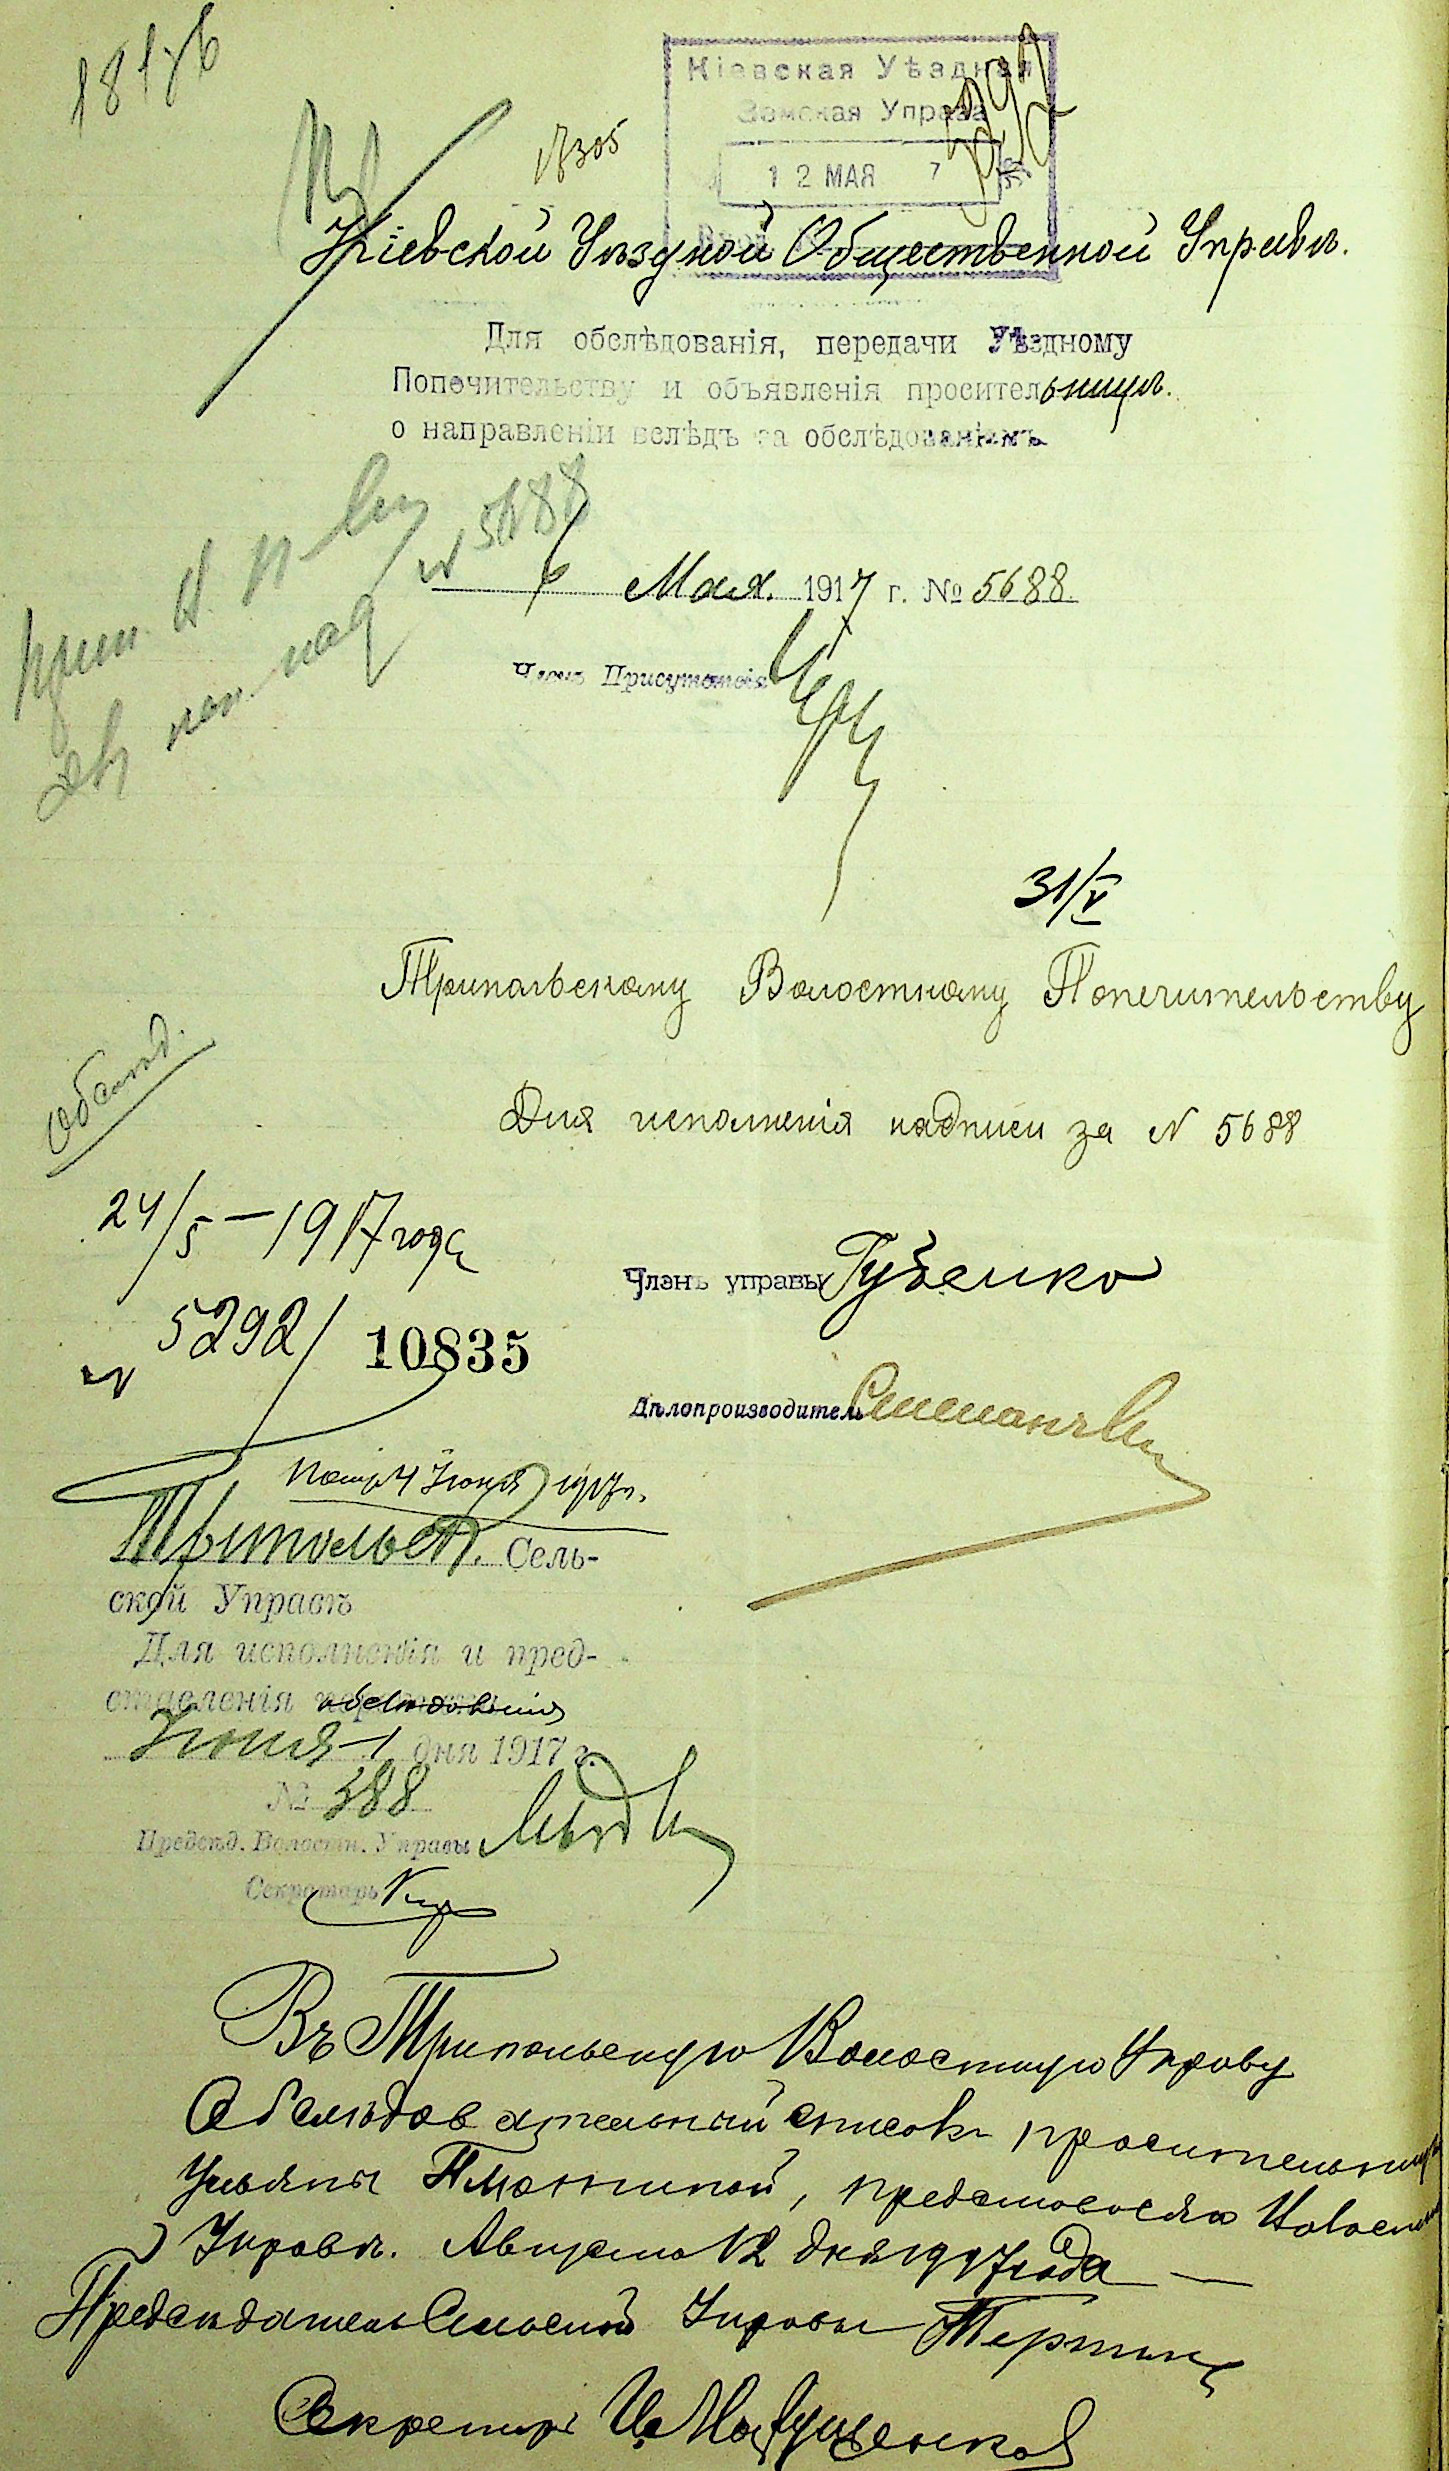 Кіевская Уѣздная
Земская Управа
12 МАЯ 7
17305
Кіевской Уѣздной Общественной Управѣ.
Для обслѣдованія, передачи Уѣздному
Попечительству и объявленія просительницѣ.
о направленіи вслѣдъ за обслѣдованіемъ
№ 5688
6 Мая 1917 г. № 5688
Членъ Присутствія
31/V
Трипольскому Волостному Попечительству
Обслѣд.
Для исполненія надписи за N 5688
24/5 – 1917 года
Членъ управы Гуженко
N 5292/ 10835
Дѣлопроизводитель
4 Іюня 1917 г.
Трипольск. Сель-
ской Управѣ
Для исполненія и пред-
ставленія обслѣдованія
Іюня 1 дня 1917 г.
№ 388
Предсѣд. Волостн. Управы
Секретарь
Въ Трипольскую Волостную Управу
Обслѣдовательный списокъ просительницы
Ульяны Плотниной, представляя Волостной
Управѣ. Августа 12 дня 1917 года —
Предсѣдатель Сельской Управы
Секретарь